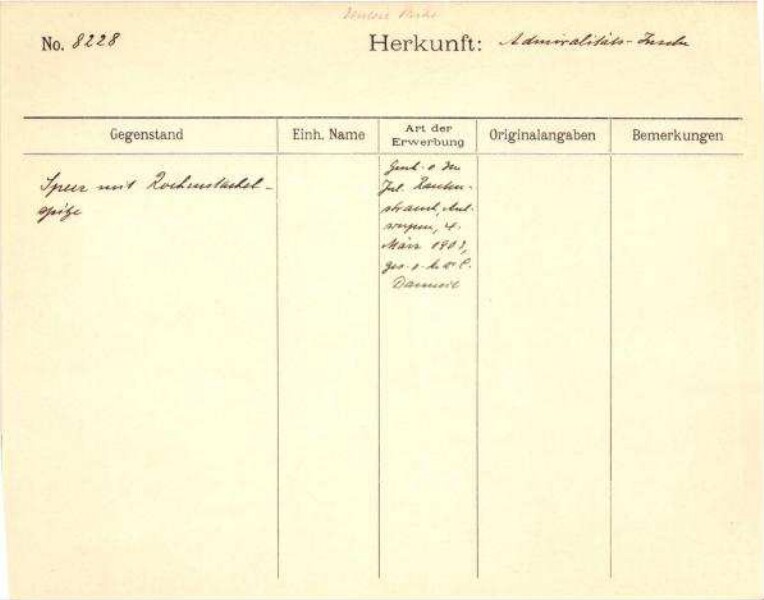 No. 8228
Herkunft: Admiralitäts-Inseln
Gegenstand
Einh. Name
Art der Erwerbung
Originalangaben
Bemerkungen
Speer mit Rochenstachel-
spitze
Jul. Rauten-
strauch, Ant-
werpen, 4.
März 1903,